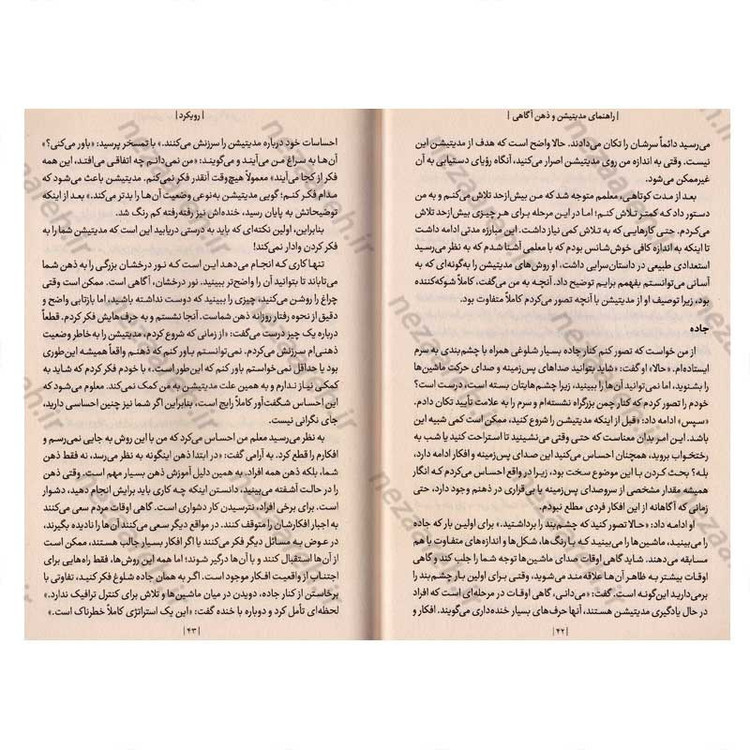 | راهنمای مدیتیشن و ذهن آگاهی |
می‌رسید دائماً سرشان را تکان می‌دادند. حالا واضح است که هدف از مدیتیشن این
نیست. وقتی به اندازه من روی مدیتیشن اصرار می‌کنید، آنگاه رؤیای دستیابی به آن
غیرممکن می‌شود.
بعد از مدت کوتاهی، معلمم متوجه شد که من بیش‌ازحد تلاش می‌کنم و به من
دستور داد که کمتر تلاش کنم؛ اما در این مرحله برای هر چیزی بیش‌ازحد تلاش
می‌کردم. حتی کارهایی که به تلاش کمی نیاز داشت. این مبارزه مدتی ادامه داشت
تا اینکه به اندازه کافی خوش‌شانس بودم که با معلمی آشنا شدم که به نظر می‌رسید
استعدادی طبیعی در داستان‌سرایی داشت، او روش‌های مدیتیشن را به‌گونه‌ای که به
آسانی می‌توانستم بفهمم برایم توضیح داد. آنچه به من می‌گفت، کاملاً شوکه‌کننده
بود، زیرا توصیف او از مدیتیشن با آنچه تصور می‌کردم کاملاً متفاوت بود.
جاده
از من خواست که تصور کنم کنار جاده بسیار شلوغی همراه با چشم‌بندی به سرم
ایستاده‌ام. «حالا» او گفت: «شاید بتوانید صداهای پس‌زمینه و صدای حرکت ماشین‌ها
را بشنوید، اما نمی‌توانید آن‌ها را ببینید، زیرا چشم‌هایتان بسته است، درست است؟
خودم را تصور کردم که کنار چمن بزرگراه نشسته‌ام و سرم را به علامت تأیید تکان دادم.
«سپس» ادامه داد: «قبل از اینکه مدیتیشن را شروع کنید، ممکن است کمی شبیه این
باشد. این امر بدان معناست که حتی وقتی می‌نشینید تا استراحت کنید یا شب به
رختخواب بروید، همچنان احساس می‌کنید این صدای پس‌زمینه و افکار ادامه دارد،
بله؟ بحث کردن با این موضوع سخت بود، زیرا در واقع احساس می‌کردم که انگار
همیشه مقدار مشخصی از سروصدای پس‌زمینه یا بی‌قراری در ذهنم وجود دارد، حتی
زمانی که آگاهانه از این افکار فردی مطلع نبودم.
او ادامه داد: «حالا تصور کنید که چشم‌بند را برداشتید.» برای اولین بار که جاده
را می‌بینید، ماشین‌ها را می‌بینید که با رنگ‌ها، شکل‌ها و اندازه‌های متفاوت با هم
مسابقه می‌دهند. شاید گاهی اوقات صدای ماشین‌ها توجه شما را جلب کند و گاهی
اوقات بیشتر به ظاهر آن‌ها علاقه‌مند می‌شوید، وقتی برای اولین بار چشم‌بند را
برمی‌دارید این‌گونه است. گفت: «می‌دانی، گاهی اوقات در مرحله‌ای است که افراد
در حال یادگیری مدیتیشن هستند، آنها حرف‌های بسیار خنده‌داری می‌گویند. افکار و
| ۴۲ |
| رویکرد |
احساسات خود درباره مدیتیشن را سرزنش می‌کنند.» با تمسخر پرسید: «باور می‌کنی؟»
آن‌ها به سراغ من می‌آیند و می‌گویند: «من نمی‌دانم چه اتفاقی می‌افتد، این همه
فکر از کجا می‌آیند» معمولاً هیچ‌وقت آنقدر فکر نمی‌کنم. مدیتیشن باعث می‌شود که
مدام فکر کنم؛ گویی مدیتیشن به‌نوعی وضعیت آن‌ها را بدتر می‌کند.» بعد از اینکه
توضیحاتش به پایان رسید، خنده‌اش نیز رفته‌رفته کم رنگ شد.
بنابراین، اولین نکته‌ای که باید به درستی دریابید این است که مدیتیشن شما را به
فکر کردن وادار نمی‌کند!
تنها کاری که انجام می‌دهد این است که نور درخشان بزرگی را به ذهن شما
می‌تاباند تا بتوانید آن را واضح‌تر ببینید. نور درخشان، آگاهی است. ممکن است وقتی
چراغ را روشن می‌کنید، چیزی را ببینید که دوست نداشته باشید، اما بازتابی واضح و
دقیق از نحوه رفتار روزانه ذهن شماست. آنجا نشستم و به حرف‌هایش فکر کردم. قطعاً
درباره یک چیز درست می‌گفت: «از زمانی که شروع کردم، مدیتیشن را به‌خاطر وضعیت
ذهنی‌ام سرزنش می‌کردم. نمی‌توانستم باور کنم که ذهنم واقعاً همیشه این‌طوری
بود یا حداقل نمی‌خواستم باور کنم که این‌طور است.» با خودم فکر کردم که شاید به
کمکی نیاز ندارم و به همین علت مدیتیشن به من کمک نمی‌کند. معلوم شد که
این احساس شگفت‌آور کاملاً رایج است، بنابراین اگر شما نیز چنین احساسی دارید،
جای نگرانی نیست.
به نظر می‌رسید معلم من احساس می‌کرد که من با این روش به جایی نمی‌رسم و
افکارم را قطع کرد. به آرامی گفت: «در ابتدا ذهن اینگونه به نظر می‌رسد، نه فقط ذهن
شما، بلکه ذهن همه افراد. به همین دلیل آموزش ذهن بسیار مهم است. وقتی ذهن
را در حالت آشفته می‌بینید، دانستن اینکه چه کاری باید برایش انجام دهید، دشوار
است. برای برخی افراد، نترسیدن کار دشواری است. گاهی اوقات مردم سعی می‌کنند
به اجبار افکارشان را متوقف کنند. در مواقع دیگر سعی می‌کنند آن‌ها را نادیده بگیرند،
در عوض به مسائل دیگر فکر می‌کنند یا اگر افکار بسیار جالب هستند، ممکن است
از آن‌ها استقبال کنند و با آن‌ها درگیر شوند؛ اما همه این روش‌ها، فقط راه‌هایی برای
اجتناب از واقعیت افکار موجود است. اگر به همان جاده شلوغ فکر کنید، تفاوتی با
برخاستن از کنار جاده، دویدن در میان ماشین‌ها و تلاش برای کنترل ترافیک ندارد.»
لحظه‌ای تأمل کرد و دوباره با خنده گفت: «این یک استراتژی کاملاً خطرناک است.»
| ۴۳ |